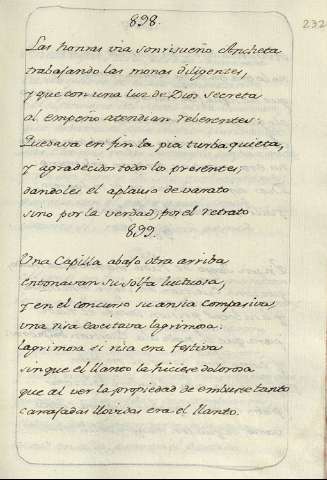 898.
232
Las honras via son risueño Ancheta
trabajando las monas diligentes,
y que con una luz de Dios secreta
al empeño atendian reberentes:
Quedava en fin la pia turba quieta,
y agradecidos todos los presentes,
dandoles el aplauso de varato
sino por la verdad, por el retrato
899.
Una Capilla abajo otra arriba
entonavan su solfa luctuosa,
y en el concurso su ansia compasiva
una risa excitava lagrimosa:
lagrimosa si risa era festiva
sin que el llanto la hiciese dolorosa
que al ver la propiedad de embuste tanto
carcajadas llovidas era el llanto.